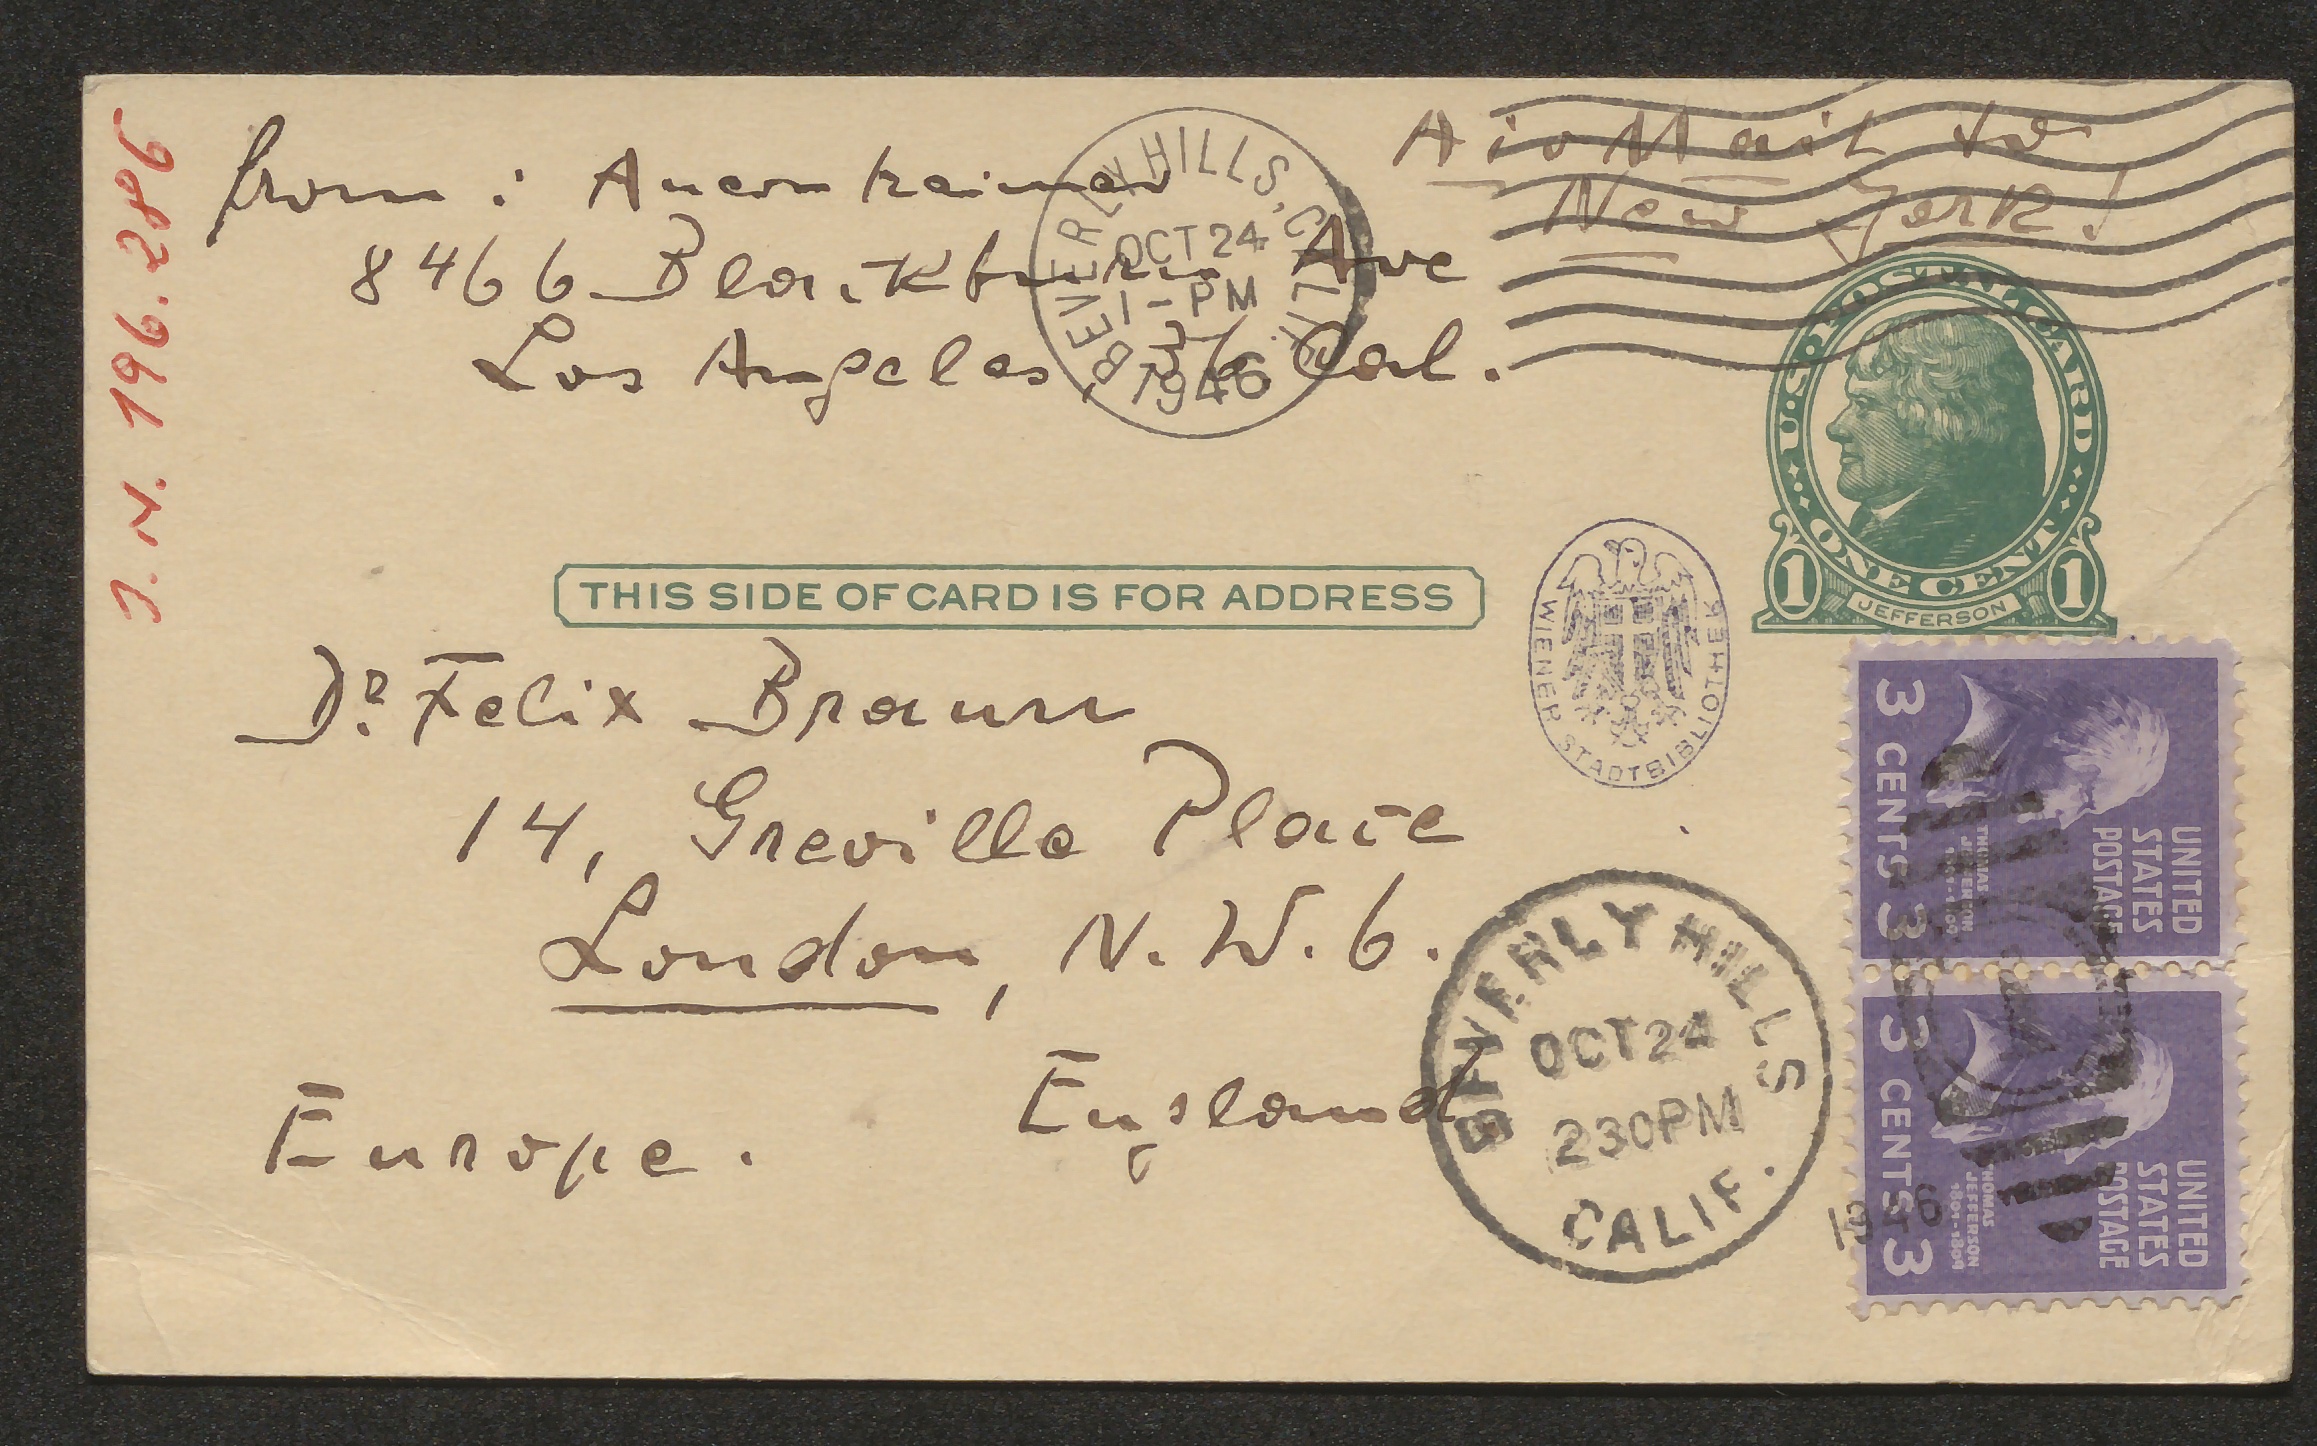 J. N. 196.286
from: Auernheimer
8466 Blackburn Ave
Los Angeles 36 Cal.
BEVERLY HILLS, CALIF.
OCT 24
1-PM
1946
Air Mail to
New York!
U·S·POSTAL CARD
ONE CENT
1 JEFFERSON 1
THIS SIDE OF CARD IS FOR ADDRESS
WIENER STADTBIBLIOTHEK
Dr. Felix Braun
14, Greville Place
London, N. W. 6.
England
Europe.
BEVERLY HILLS
OCT 24
230PM
CALIF.
1946
3 CENTS 3
THOMAS
JEFFERSON
1801-1809
UNITED
STATES
POSTAGE
3 CENTS 3
THOMAS
JEFFERSON
1801-1809
UNITED
STATES
POSTAGE